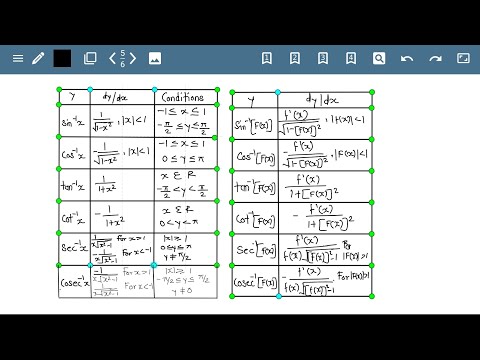 5
6
1
2
3
4
y dy/dx Conditions
sin⁻¹x 1/√(1-x²), |x|<1 -1≤x≤1
-π/2≤y≤π/2
cos⁻¹x -1/√(1-x²), |x|<1 -1≤x≤1
0≤y≤π
tan⁻¹x 1/(1+x²) x ε R
-π/2<y<π/2
cot⁻¹x -1/(1+x²) x ε R
0<y<π
Sec⁻¹x 1/(x√(x²-1)) for x>1 |x|≥1
-1/(x√(x²-1)) for x<-1 0≤y≤π
y≠π/2
Cosec⁻¹x -1/(x√(x²-1)) for x>1 |x|≥1
1/(x√(x²-1)) for x<-1 -π/2≤y≤π/2
y≠0
y dy/dx
sin⁻¹[F(x)] f'(x)/√(1-[F(x)]²), |F(x)|<1
Cos⁻¹[F(x)] -f'(x)/√(1-[F(x)]²), |F(x)|<1
tan⁻¹[F(x)] f'(x)/(1+[F(x)]²)
Cot⁻¹[F(x)] -f'(x)/(1+[F(x)]²)
Sec⁻¹[F(x)] f'(x)/(f(x)√([F(x)]²-1)) for |F(x)|>1
Cosec⁻¹[F(x)] -f'(x)/(f(x)√([f(x)]²-1)) For |F(x)|>1